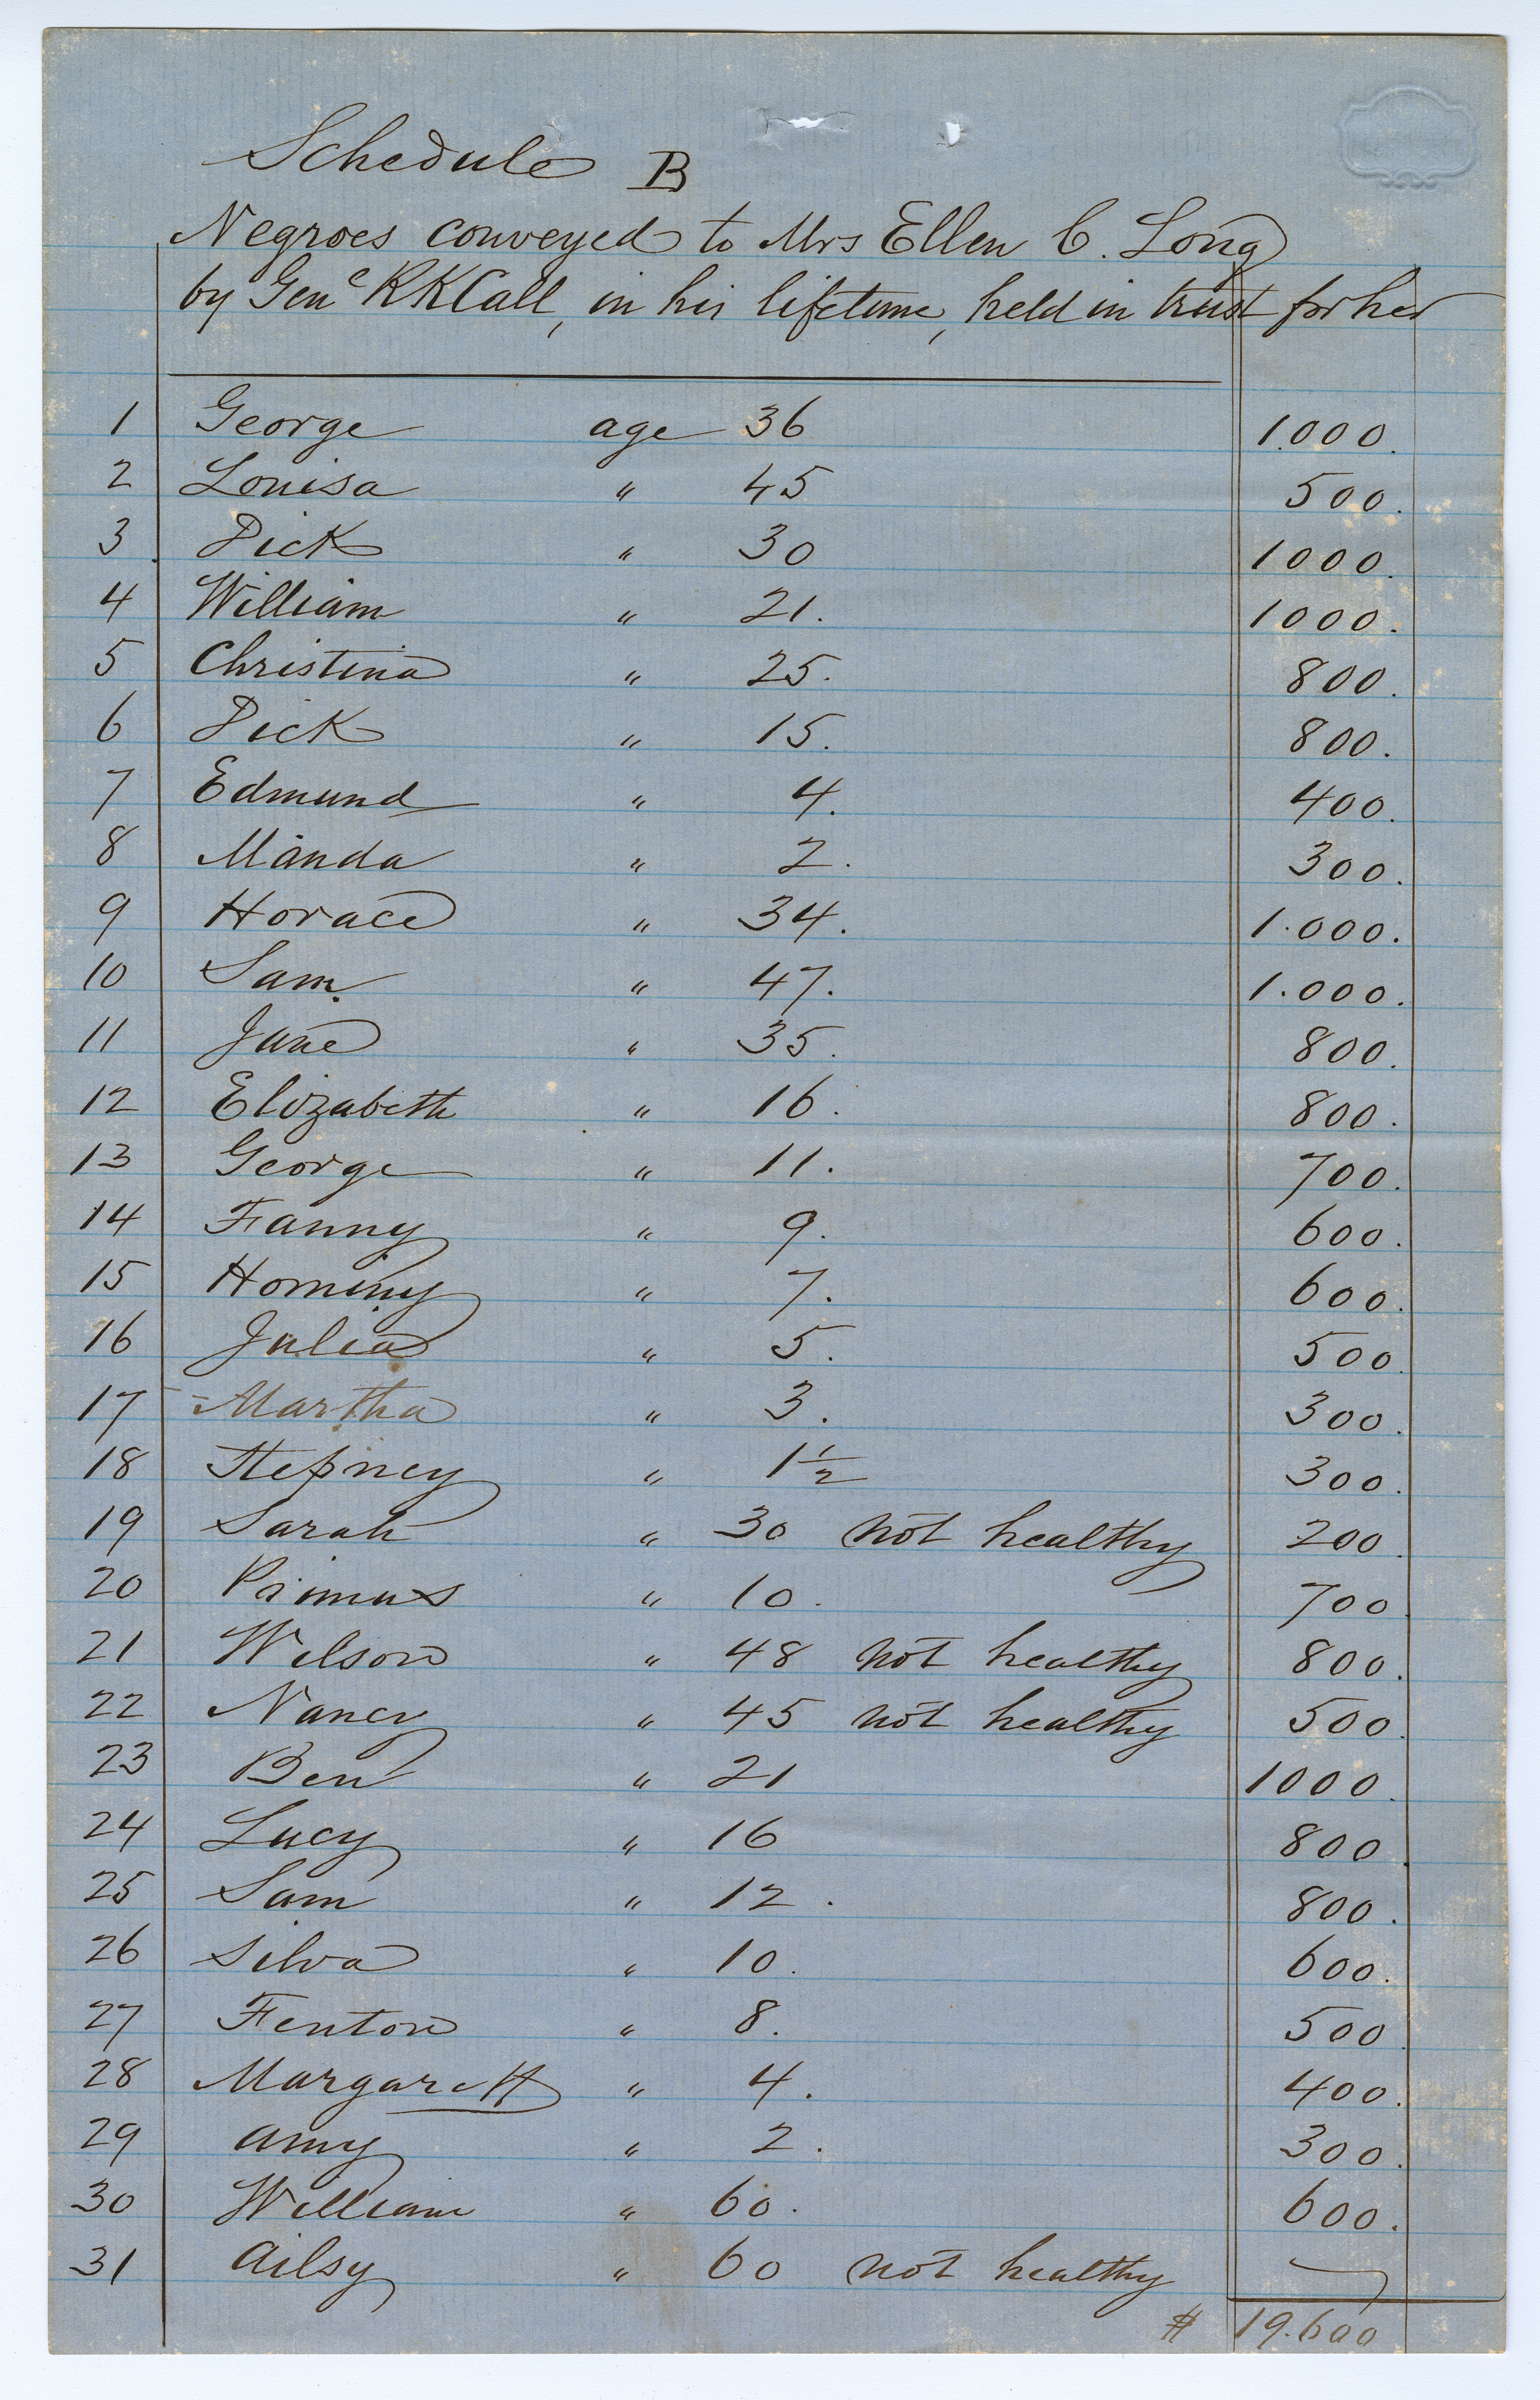 Schedule B
Negroes conveyed to Mrs Ellen C. Long
by Genl RKCall, in his lifetime, held in trust for her
1 George age 36 1.000.
2 Louisa " 45 500.
3 Dick " 30 1000.
4 William " 21. 1000.
5 Christina " 25. 800.
6 Dick " 15. 800.
7 Edmund " 4. 400.
8 Manda " 2. 300.
9 Horace " 34. 1.000.
10 Sam " 47. 1.000.
11 Jane " 35. 800.
12 Elizabeth " 16. 800.
13 George " 11. 700.
14 Fanny " 9. 600.
15 Hominy " 7. 600.
16 Julia " 5. 500
17 - Martha " 3. 300.
18 Stepney " 1 1/2 300.
19 Sarah " 30 not healthy 200.
20 Primus " 10. 700
21 Wilson " 48 not healthy 800.
22 Nancy " 45 not healthy 500.
23 Ben " 21 1000.
24 Lucy " 16 800.
25 Sam " 12. 800.
26 Silva " 10. 600.
27 Fenton " 8. 500.
28 Margarett " 4. 400.
29 Amy " 2. 300.
30 William " 60. 600.
31 Ailsy " 60 not healthy
$ 19.600